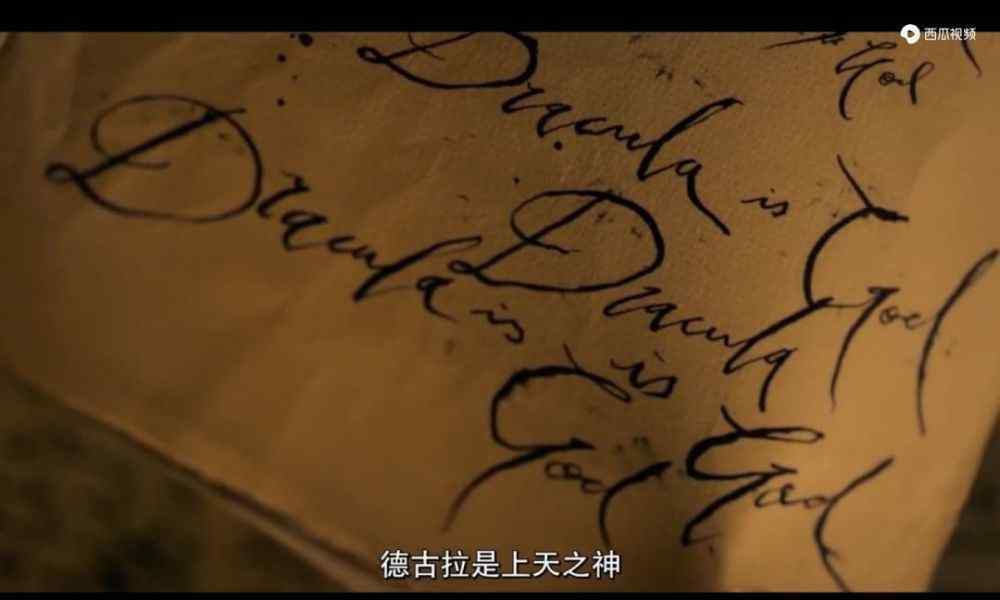 西瓜视频
God
Dracula is God
Dracula is God
Dracula is God
德古拉是上天之神